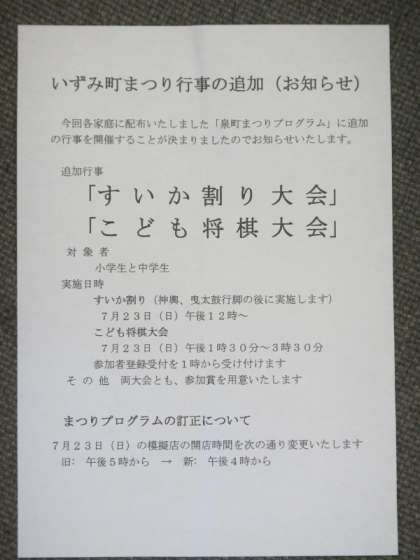 いずみ町まつり行事の追加（お知らせ）
今回各家庭に配布いたしました「泉町まつりプログラム」に追加
の行事を開催することが決まりましたのでお知らせいたします。
追加行事
「すいか割り大会」
「こども将棋大会」
対 象 者
小学生と中学生
実施日時
すいか割り（神輿、曳太鼓行脚の後に実施します）
７月２３日（日）午後１２時～
こども将棋大会
７月２３日（日）午後１時３０分～３時３０分
参加者登録受付を１時から受け付けます
そ の 他　両大会とも、参加賞を用意いたします
まつりプログラムの訂正について
７月２３日（日）の模擬店の開店時間を次の通り変更いたします
旧:　午後５時から　→　新:　午後４時から